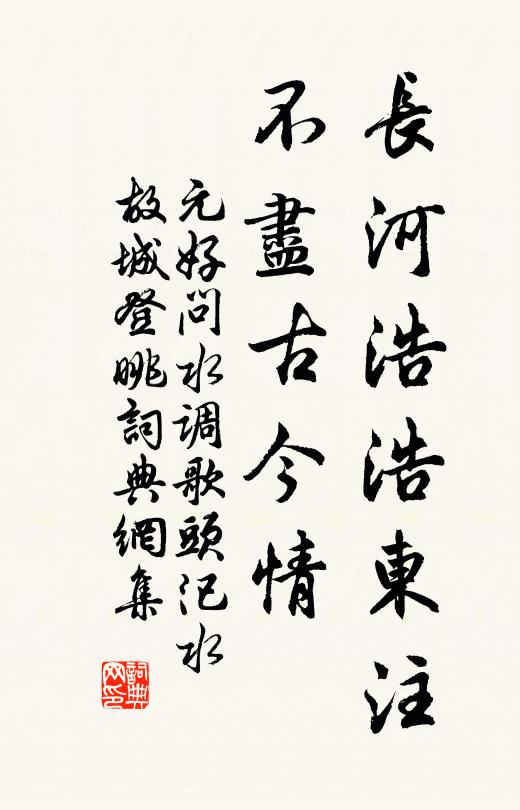 長河浩浩東注
不盡古今情
元好问水调歌頭汜水
故城登眺詞典網集
詞典网印